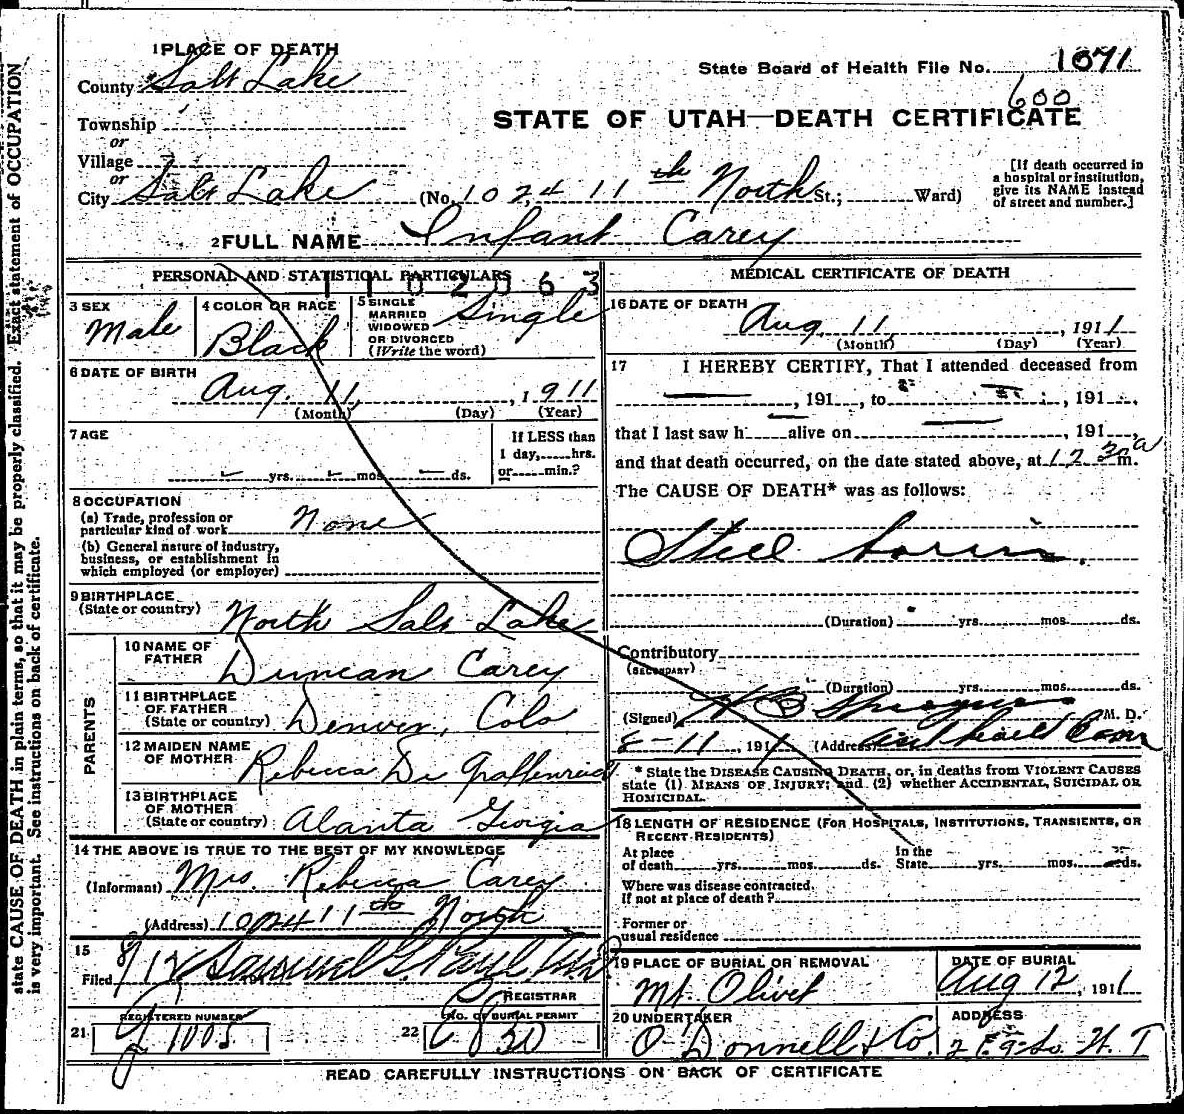 state CAUSE OF DEATH in plain terms, so that it may be properly classified. Exact statement of OCCUPATION
is very important. See instructions on back of certificate.
1 PLACE OF DEATH
County Salt Lake
State Board of Health File No. 1071
600
STATE OF UTAH—DEATH CERTIFICATE
Township
or
Village
or
City Salt Lake (No. 1024 11th North St.; Ward)
[If death occurred in
a hospital or institution,
give its NAME instead
of street and number.]
2 FULL NAME Infant Carey
PERSONAL AND STATISTICAL PARTICULARS
1102063
3 SEX
Male
4 COLOR OR RACE
Black
5 SINGLE
MARRIED
WIDOWED
OR DIVORCED
(Write the word)
Single
6 DATE OF BIRTH
Aug. 11, 1911
(Month) (Day) (Year)
7 AGE
yrs. mos. ds.
If LESS than
1 day, hrs.
or min.?
8 OCCUPATION
(a) Trade, profession or
particular kind of work None
(b) General nature of industry,
business, or establishment in
which employed (or employer)
9 BIRTHPLACE
(State or country) North Salt Lake
PARENTS
10 NAME OF
FATHER Duncan Carey
11 BIRTHPLACE
OF FATHER
(State or country) Denver, Colo
12 MAIDEN NAME
OF MOTHER Rebecca De Graffenread
13 BIRTHPLACE
OF MOTHER
(State or country) Alanta Georgia
14 THE ABOVE IS TRUE TO THE BEST OF MY KNOWLEDGE
(Informant) Mrs. Rebecca Carey
(Address) 1024 11th North
15
Filed 8/12 Samuel G. Paul
REGISTRAR
21 REGISTERED NUMBER
1005
22 NO. OF BURIAL PERMIT
830
MEDICAL CERTIFICATE OF DEATH
16 DATE OF DEATH
Aug. 11, 1911
(Month) (Day) (Year)
17 I HEREBY CERTIFY, That I attended deceased from
, 191 , to , 191 ,
that I last saw h alive on , 191 ,
and that death occurred, on the date stated above, at 12 30 a m.
The CAUSE OF DEATH* was as follows:
Steel born.
(Duration) yrs. mos. ds.
Contributory
(SECONDARY)
(Duration) yrs. mos. ds.
(Signed) H B Sprague M. D.
8-11, 1911 (Address)
* State the DISEASE CAUSING DEATH, or, in deaths from VIOLENT CAUSES
state (1) MEANS OF INJURY; and (2) whether ACCIDENTAL, SUICIDAL OR
HOMICIDAL.
18 LENGTH OF RESIDENCE (FOR HOSPITALS, INSTITUTIONS, TRANSIENTS, OR
RECENT RESIDENTS)
At place
of death yrs. mos. ds.
In the
State yrs. mos. ds.
Where was disease contracted,
if not at place of death?
Former or
usual residence
19 PLACE OF BURIAL OR REMOVAL
Mt. Olivet
DATE OF BURIAL
Aug 12, 1911
20 UNDERTAKER
O Donnell & Co.
ADDRESS
So. W. T
READ CAREFULLY INSTRUCTIONS ON BACK OF CERTIFICATE